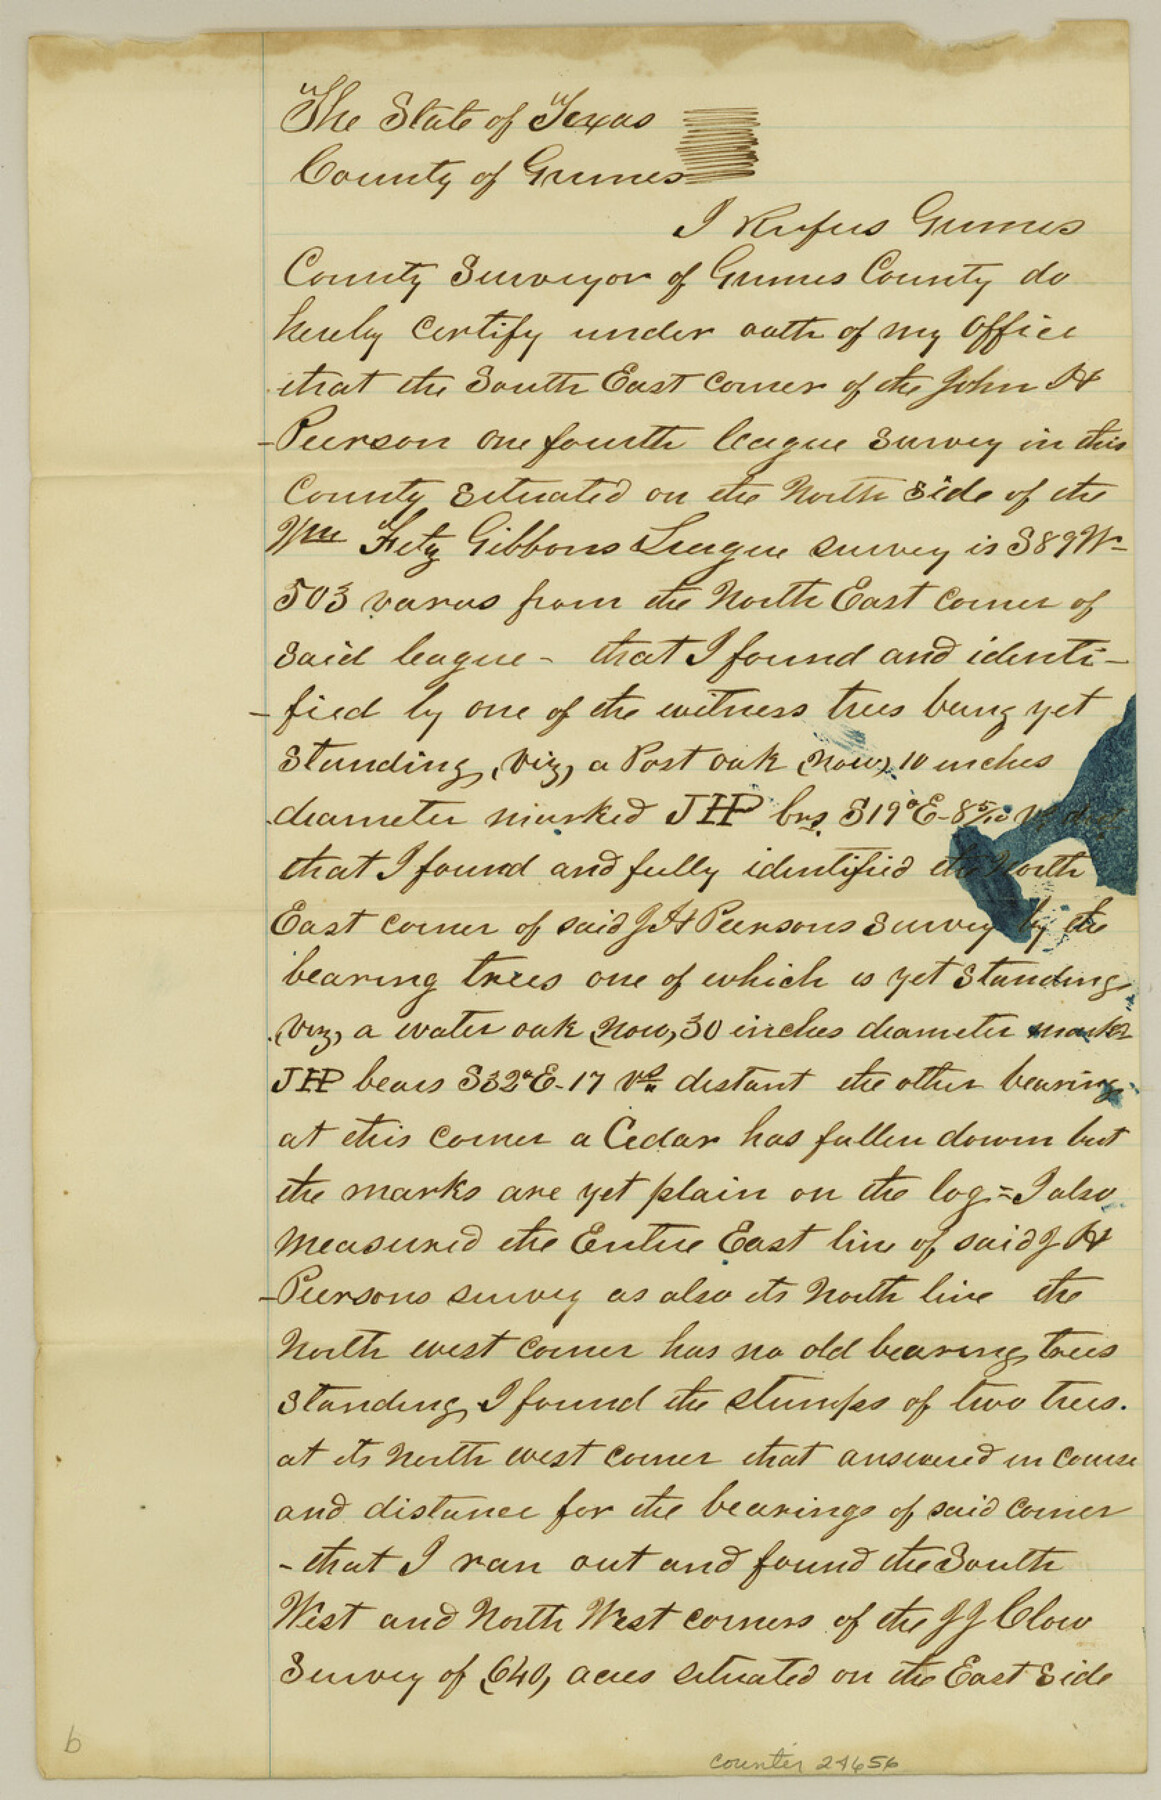 The State of Texas
County of Grimes
I Rufus Grimes
County Surveyor of Grimes County do
hereby certify under oath of my office
that the South East corner of the John H
-Peirson one fourth league survey in this
County situated on the North side of the
Wm Fitz Gibbons League survey is S89W-
503 varas from the North East corner of
said league - that I found and identi-
-fied by one of the witness trees being yet
standing, (viz) a Post oak (now) 10 inches
diameter marked JHP brs S19°E-8 5/10 vs dist
that I found and fully identified the North
East corner of said J H Peirsons Survey by the
bearing trees one of which is yet standing
(viz) a water oak (now) 30 inches diameter marked
JHP bears S32°E-17 vs distant the other bearing
at this corner a Cedar has fallen down but
the marks are yet plain on the log = I also
measured the Entire East line of said J H
-Peirsons survey as also its North line the
North west corner has no old bearing trees
standing, I found the stumps of two trees.
at its North west corner that answered in course
and distance for the bearings of said corner
- that I ran out and found the South
West and North West corners of the J J Clow
Survey of (640) acres situated on the East side
b
counter 24656